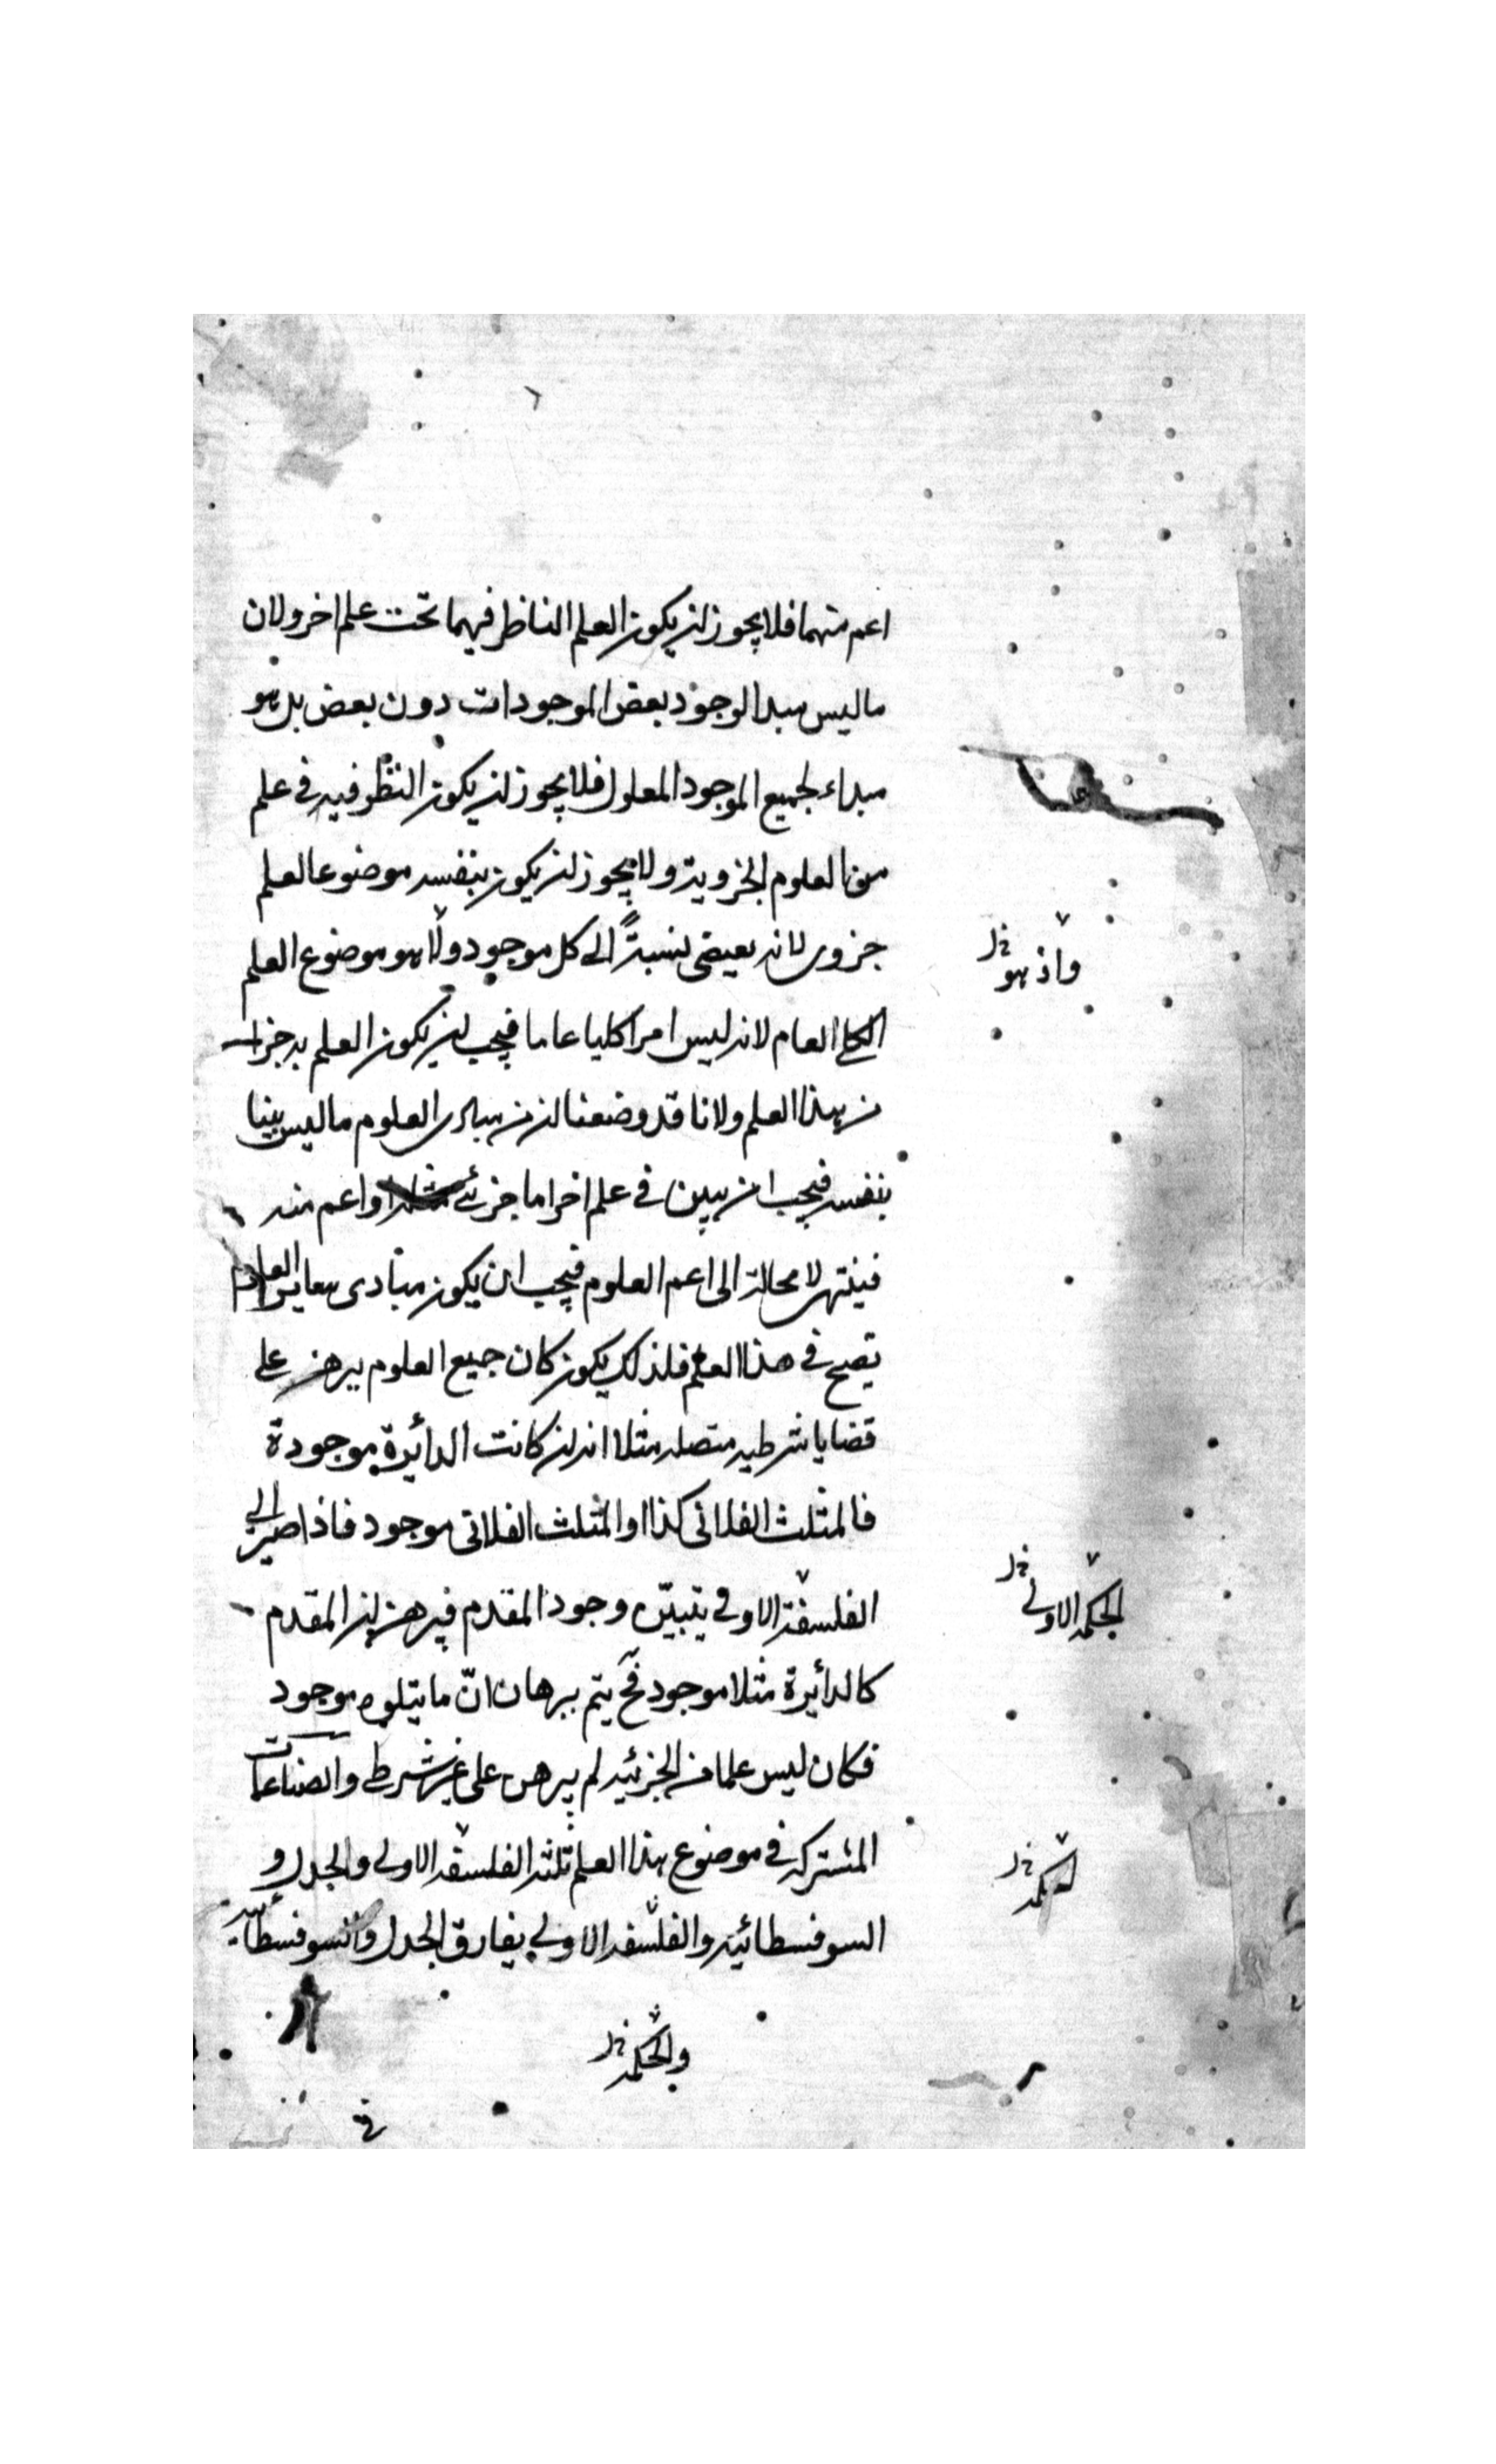 اعم منهما فلا يجوز ان يكون العلم الناظر فيهما تحت علم اخر ولان
ما ليس مبدا لوجود بعض الموجودات دون بعض بل هو
مبداء لجميع الموجود المعلول فلا يجوز ان يكون النظر فيه في علم
من العلوم الجزوية ولا يجوز ان يكون بنفسه موضوعا لعلم
جزوى لانه يقتضى نسبةً الى كل موجود ولا هو موضوع العلم
واذ هو خ ل
الكلى العام لانه ليس امرا كليا عاما فيجب ان يكون العلم به جزا
من هذا العلم ولانا قد وضعنا ان من مبادى العلوم ما ليس بينا
بنفسه فيجب ان يبين في علم اخر اما جزئى او اعم منه
فينتهى لا محالة الى اعم العلوم فيجب ان يكون مبادى ساير العلوم
تصح في هذا العلم فلذلك يكون كان جميع العلوم يبرهن على
قضايا شرطيه متصله مثلا انه ان كانت الدائيرة موجودة
فالمثلث الفلانى كذا او المثلث الفلانى موجود فاذا صير الى
الفلسفة الاولى يتبيّن وجود المقدم فيبرهن ان المقدم
الحكمه الاولى خ ل
كالدائيرة مثلا موجود فح يتم برهان انّ ما يتلوه موجود
فكان ليس علما من الجزئيه لم يبرهن على غير شرطى والصناعات
المشتركه في موضوع هذا العلم ثلثه الفلسفه الاولى والجدل و
الحكمه خ ل
السوفسطائيه والفلسفه الاولى يفارق الجدل والسوفسطائيه
والحكمه خ ل
في